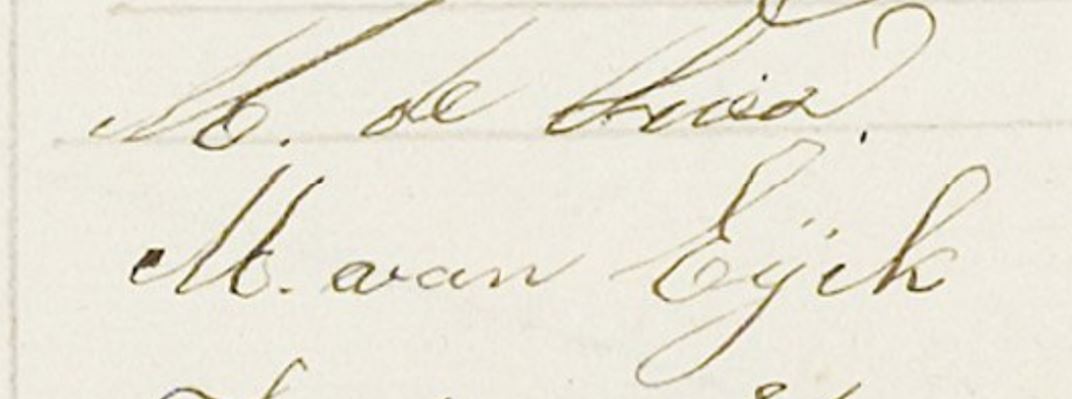 M. de Vries.
M. van Eÿck